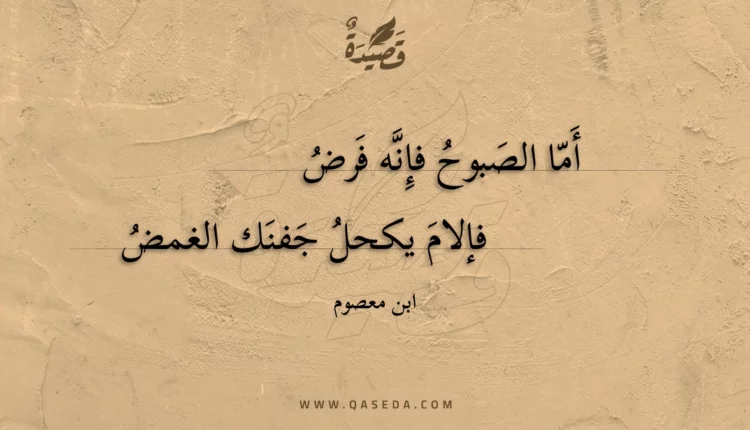 قَصِيْدَةٌ
أَمّا الصَبوحُ فإِنَّه فَرَضُ
فإلامَ يكحلُ جَفنَك الغمضُ
ابن معصوم
WWW.QASEDA.COM